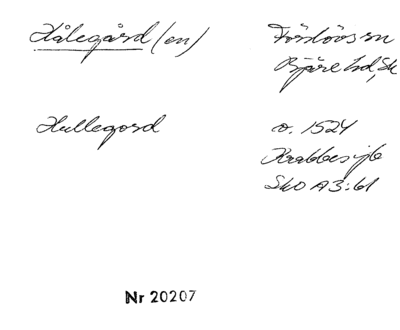 Hålegård (en)
Förslöv sn
Bjäre hd, Sk
Hullegord
o. 1524
Krabbes jb
Sko A3:61
Nr 20207